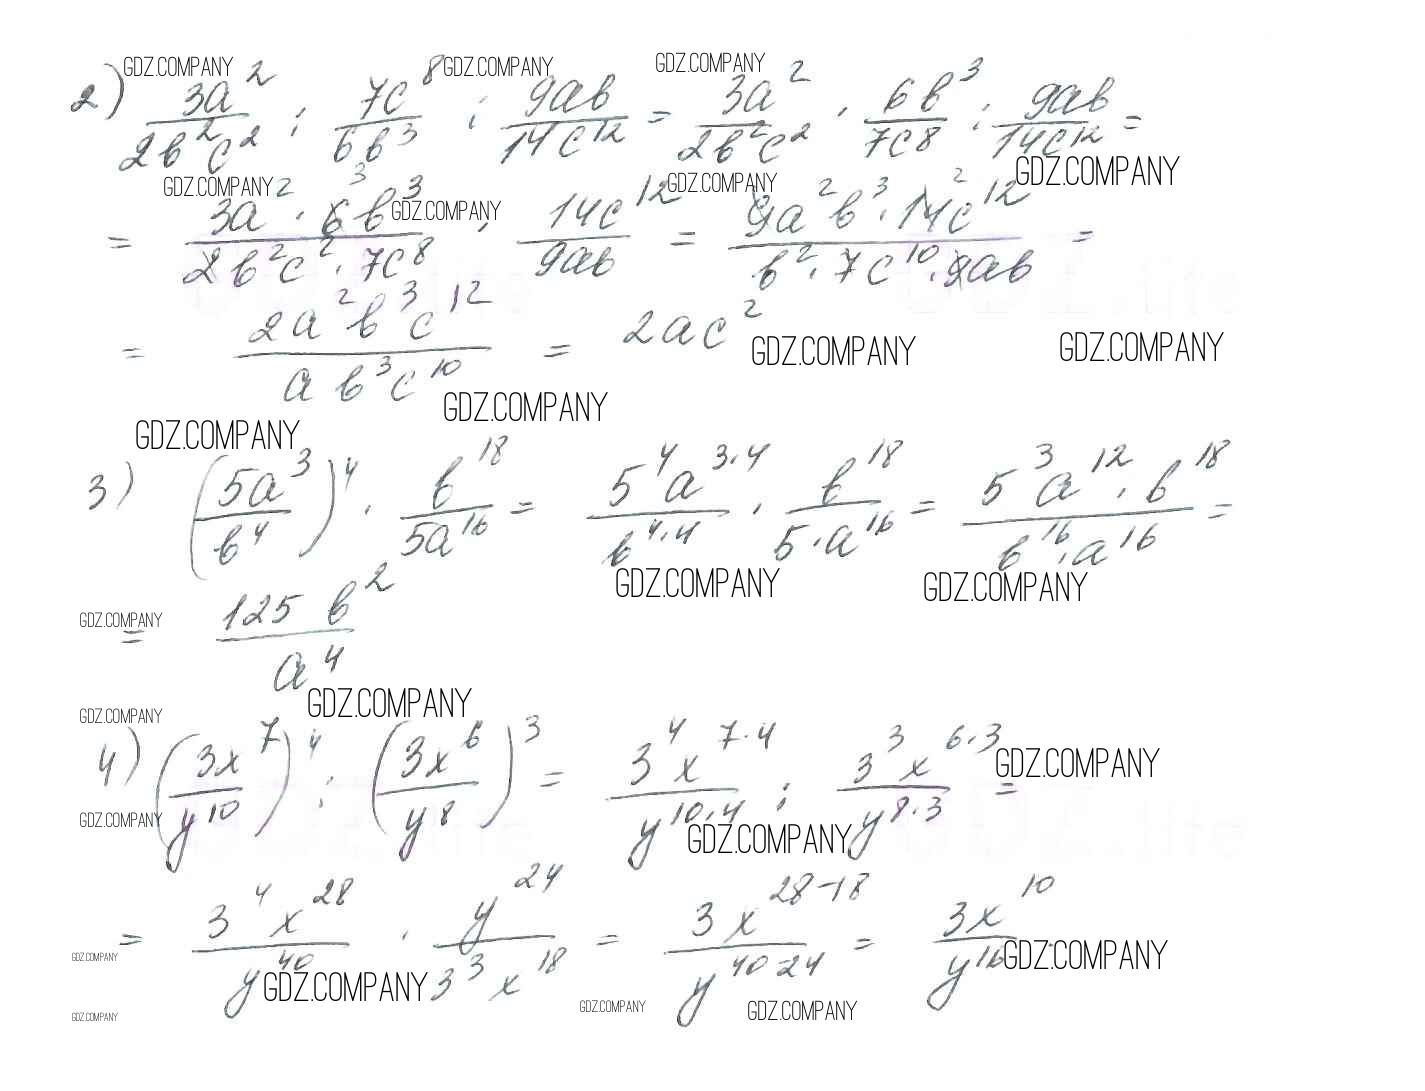 GDZ.COMPANY GDZ.COMPANY GDZ.COMPANY
2) 3a²/2b²c² : 7c⁸/6b³ : 9ab/14c¹² = 3a²/2b²c² · 6b³/7c⁸ : 9ab/14c¹² =
GDZ.COMPANY GDZ.COMPANY GDZ.COMPANY GDZ.COMPANY
= 3a² · 6b³/2b²c² · 7c⁸ · 14c¹²/9ab = 9a²b³ · 14c¹²/b² · 7c¹⁰ · 9ab =
= 2a²b³c¹²/ab³c¹⁰ = 2ac²
GDZ.COMPANY GDZ.COMPANY
GDZ.COMPANY GDZ.COMPANY
3) (5a³/b⁴)⁴ · b¹⁸/5a¹⁶ = 5⁴a³·⁴/b⁴·⁴ · b¹⁸/5·a¹⁶ = 5³a¹² · b¹⁸/b¹⁶ · a¹⁶ =
GDZ.COMPANY GDZ.COMPANY
GDZ.COMPANY
= 125 b²/a⁴
GDZ.COMPANY
GDZ.COMPANY
4) (3x⁷/y¹⁰)⁴ : (3x⁶/y⁸)³ = 3⁴x⁷·⁴/y¹⁰·⁴ : 3³x⁶·³/y⁸·³ =
GDZ.COMPANY
GDZ.COMPANY GDZ.COMPANY
= 3⁴x²⁸/y⁴⁰ · y²⁴/3³x¹⁸ = 3x²⁸⁻¹⁸/y⁴⁰⁻²⁴ = 3x¹⁰/y¹⁶
GDZ.COMPANY GDZ.COMPANY GDZ.COMPANY
GDZ.COMPANY GDZ.COMPANY GDZ.COMPANY